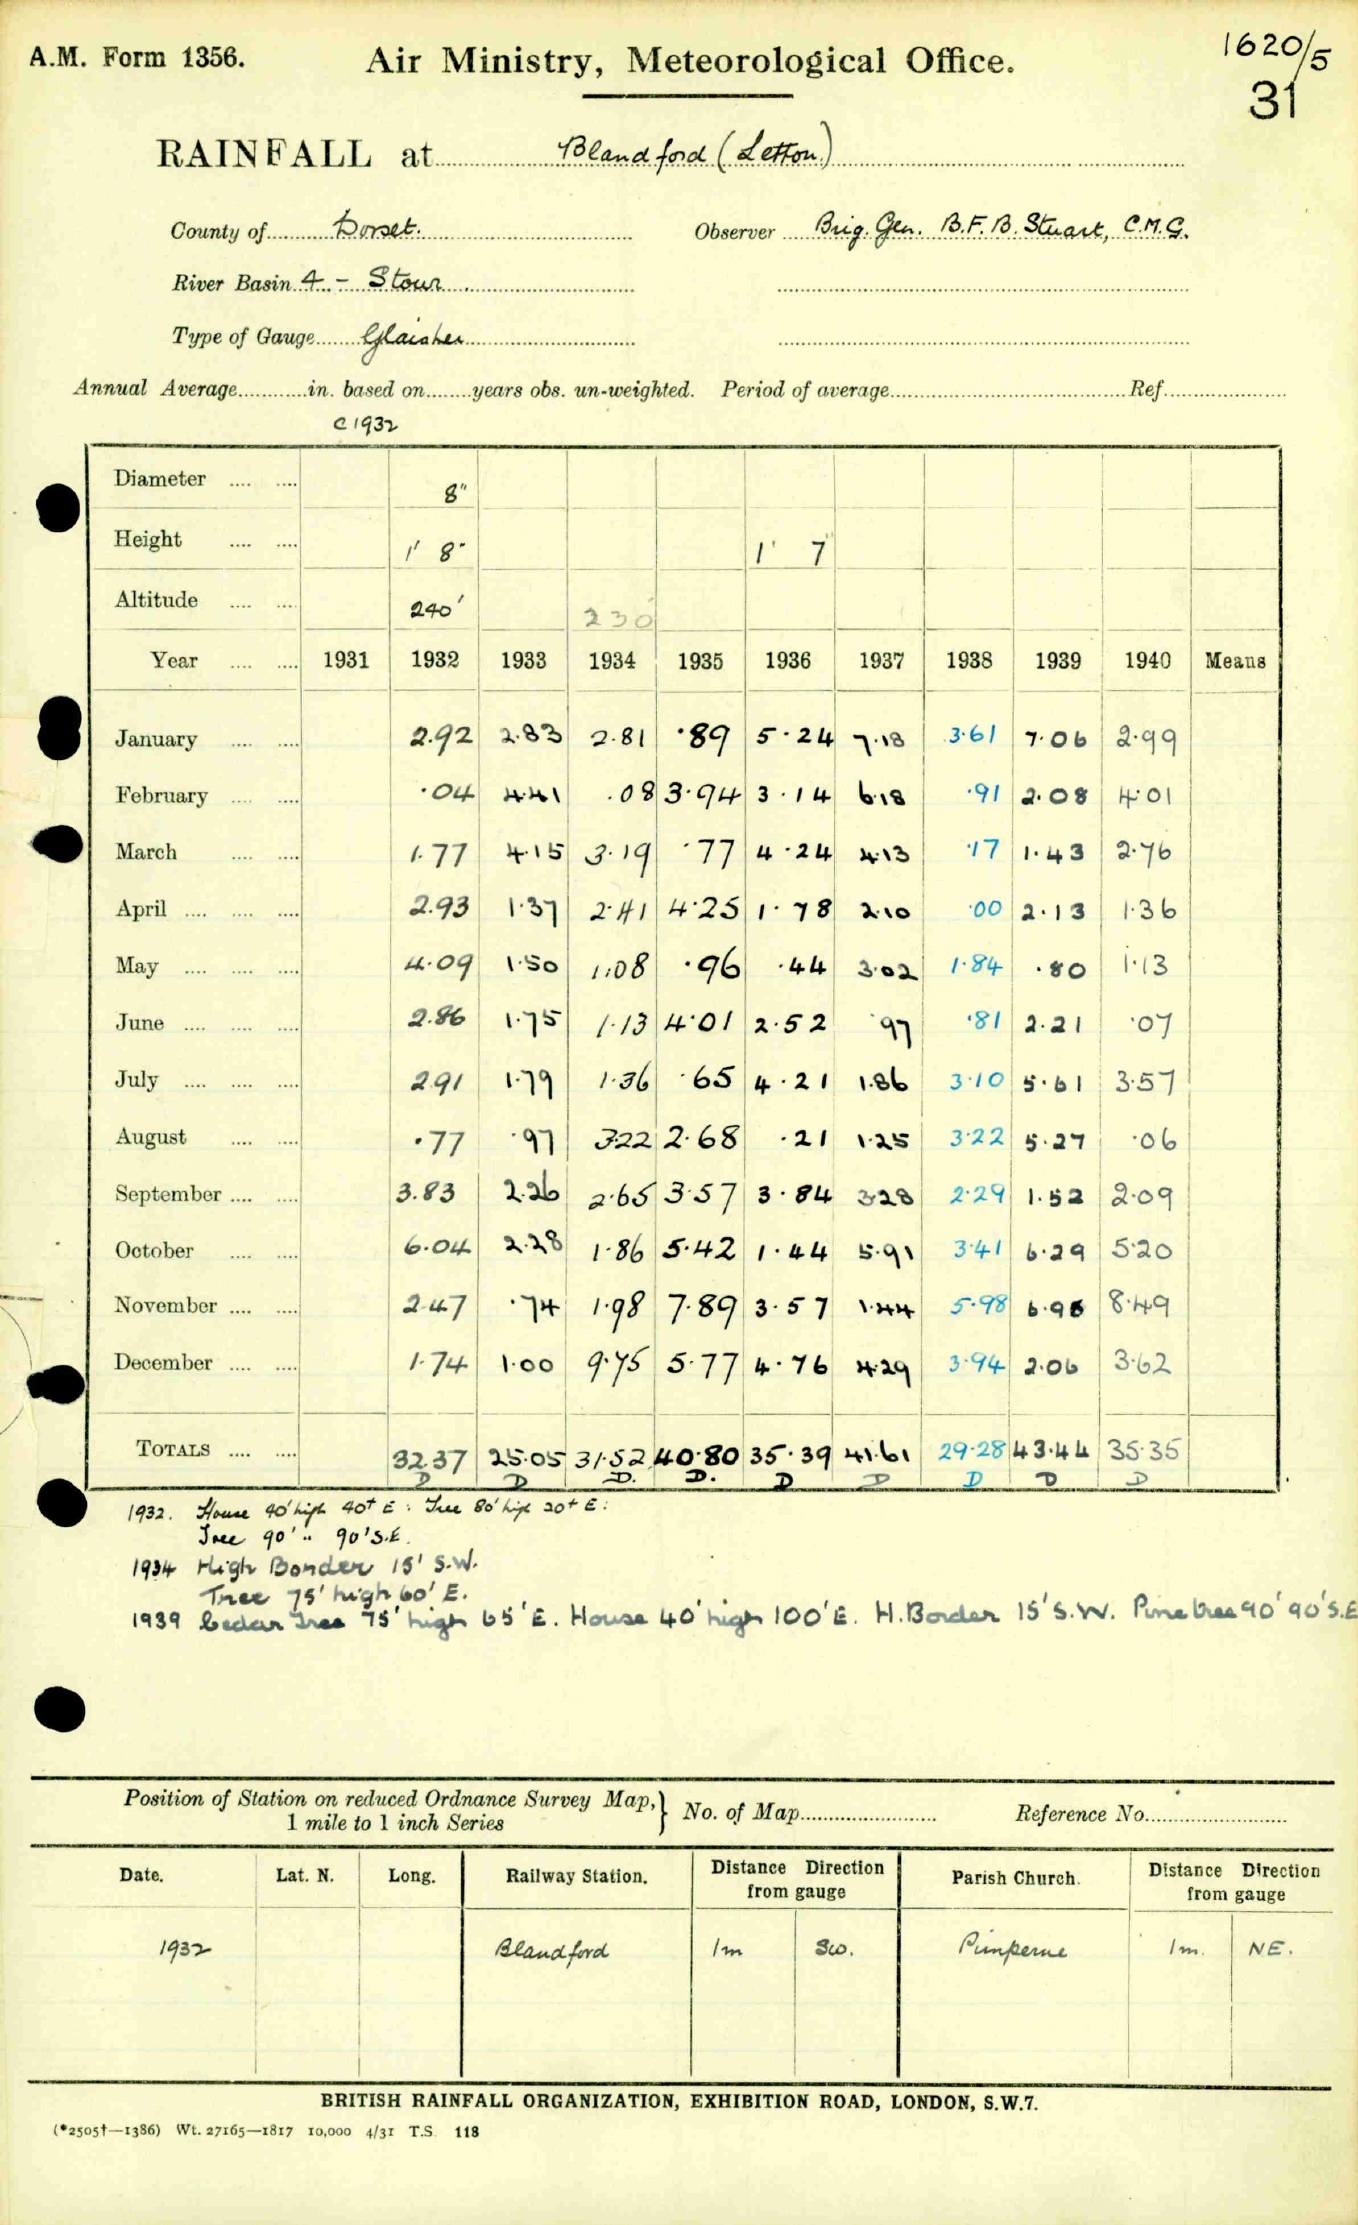 A.M. Form 1356. Air Ministry, Meteorological Office. 1620/5
31
RAINFALL at Blandford (Letton)
County of Dorset. Observer Brig. Gen. B.F.B. Stuart, C.M.G.
River Basin 4 - Stour
Type of Gauge Glaisher
Annual Average in. based on years obs. un-weighted. Period of average Ref.
c 1932
Diameter 8"
Height 1' 8" 1' 7
Altitude 240' 230'
Year 1931 1932 1933 1934 1935 1936 1937 1938 1939 1940 Means
January 2.92 2.83 2.81 .89 5.24 7.18 3.61 7.06 2.99
February .04 4.41 .08 3.94 3.14 6.18 .91 2.08 4.01
March 1.77 4.15 3.19 .77 4.24 4.13 .17 1.43 2.76
April 2.93 1.37 2.41 4.25 1.78 2.10 .00 2.13 1.36
May 4.09 1.50 1.08 .96 .44 3.02 1.84 .80 1.13
June 2.86 1.75 1.13 4.01 2.52 .97 .81 2.21 .07
July 2.91 1.79 1.36 .65 4.21 1.86 3.10 5.61 3.57
August .77 .97 3.22 2.68 .21 1.25 3.22 5.27 .06
September 3.83 2.26 2.65 3.57 3.84 3.28 2.29 1.52 2.09
October 6.04 2.28 1.86 5.42 1.44 5.91 3.41 6.29 5.20
November 2.47 .74 1.98 7.89 3.57 1.44 5.98 6.98 8.49
December 1.74 1.00 9.75 5.77 4.76 4.29 3.94 2.06 3.62
TOTALS 32.37 25.05 31.52 40.80 35.39 41.61 29.28 43.44 35.35
D D D. D. D D D D D
1932. House 40' high 40+ E: Tree 80' high 20+ E:
Tree 90' " 90' S.E.
1934 High Border 15' S.W.
Tree 75' high 60' E.
1939 Cedar Tree 75' high 65' E. House 40' high 100' E. H. Border 15' S.W. Pine tree 90' 90' S.E
Position of Station on reduced Ordnance Survey Map, 1 mile to 1 inch Series } No. of Map Reference No.
Date. Lat. N. Long. Railway Station. Distance Direction from gauge Parish Church. Distance Direction from gauge
1932 Blandford 1m SW. Pimperne 1m. NE.
BRITISH RAINFALL ORGANIZATION, EXHIBITION ROAD, LONDON, S.W.7.
(*2505†—1386) Wt. 27165—1817 10,000 4/31 T.S. 118